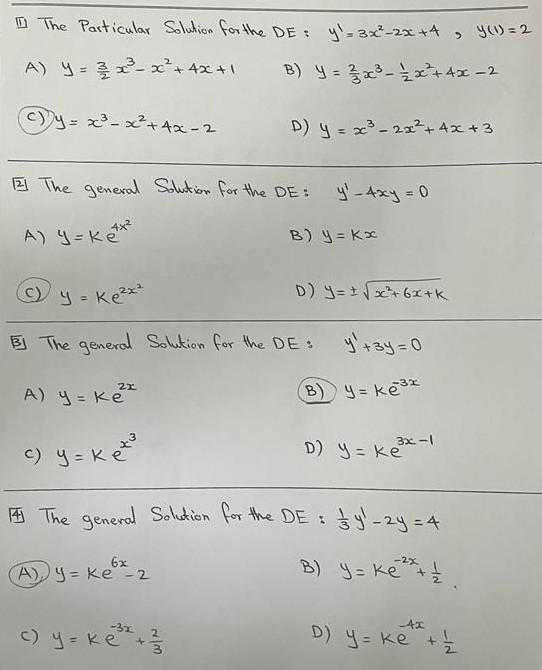 [1] The Particular Solution for the DE : y' = 3x²-2x+4 , y(1) = 2
A) y = 3/2 x³ - x² + 4x + 1 B) y = 2/3 x³ - 1/2 x² + 4x - 2
C) y = x³ - x² + 4x - 2 D) y = x³ - 2x² + 4x + 3
[2] The general Solution for the DE : y' - 4xy = 0
A) y = K e^(4x²) B) y = Kx
C) y = K e^(2x²) D) y = ± √(x² + 6x + K)
[3] The general Solution for the DE : y' + 3y = 0
A) y = K e^(2x) B) y = K e^(-3x)
C) y = K e^(x³) D) y = K e^(3x-1)
[4] The general Solution for the DE : 1/3 y' - 2y = 4
A) y = K e^(6x) - 2 B) y = K e^(-2x) + 1/2 .
C) y = K e^(-3x) + 2/3 D) y = K e^(-4x) + 1/2